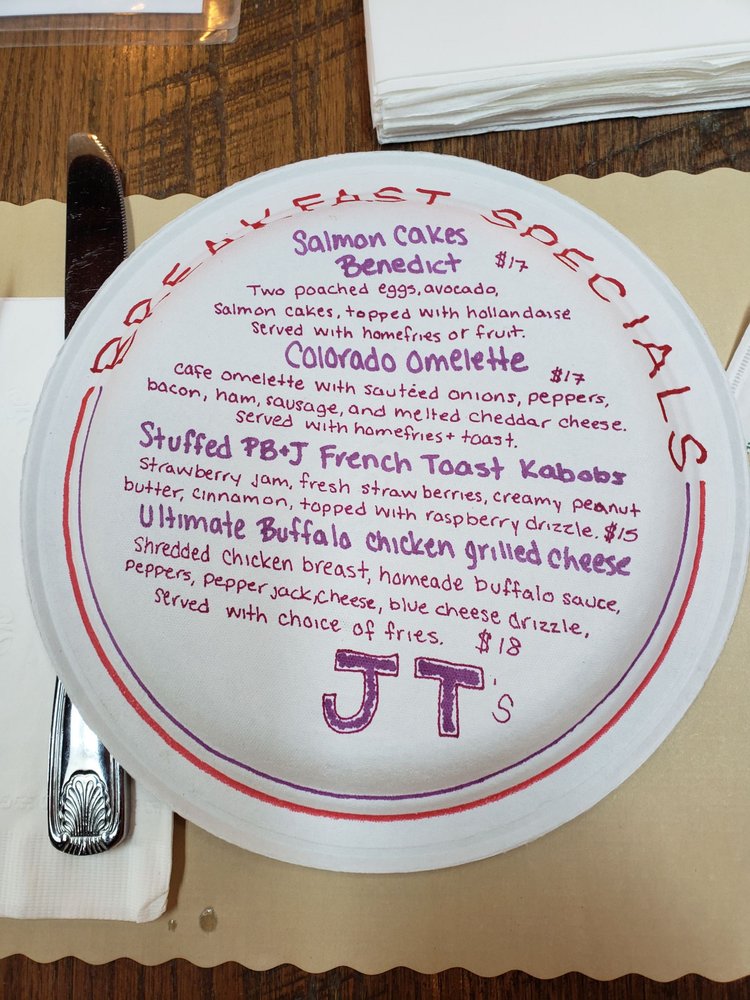 BREAKFAST SPECIALS
Salmon Cakes
Benedict $17
Two poached eggs, avocado,
Salmon cakes, topped with hollandaise
Served with homefries or fruit.
Colorado Omelette $17
Cafe omelette with sautéed onions, peppers,
bacon, ham, sausage, and melted cheddar cheese.
Served with homefries + toast.
Stuffed PB+J French Toast Kabobs
Strawberry jam, fresh strawberries, creamy peanut
butter, cinnamon, topped with raspberry drizzle. $15
Ultimate Buffalo chicken grilled cheese
Shredded chicken breast, homeade buffalo sauce,
peppers, pepper jack cheese, blue cheese drizzle,
Served with choice of fries. $18
JT's